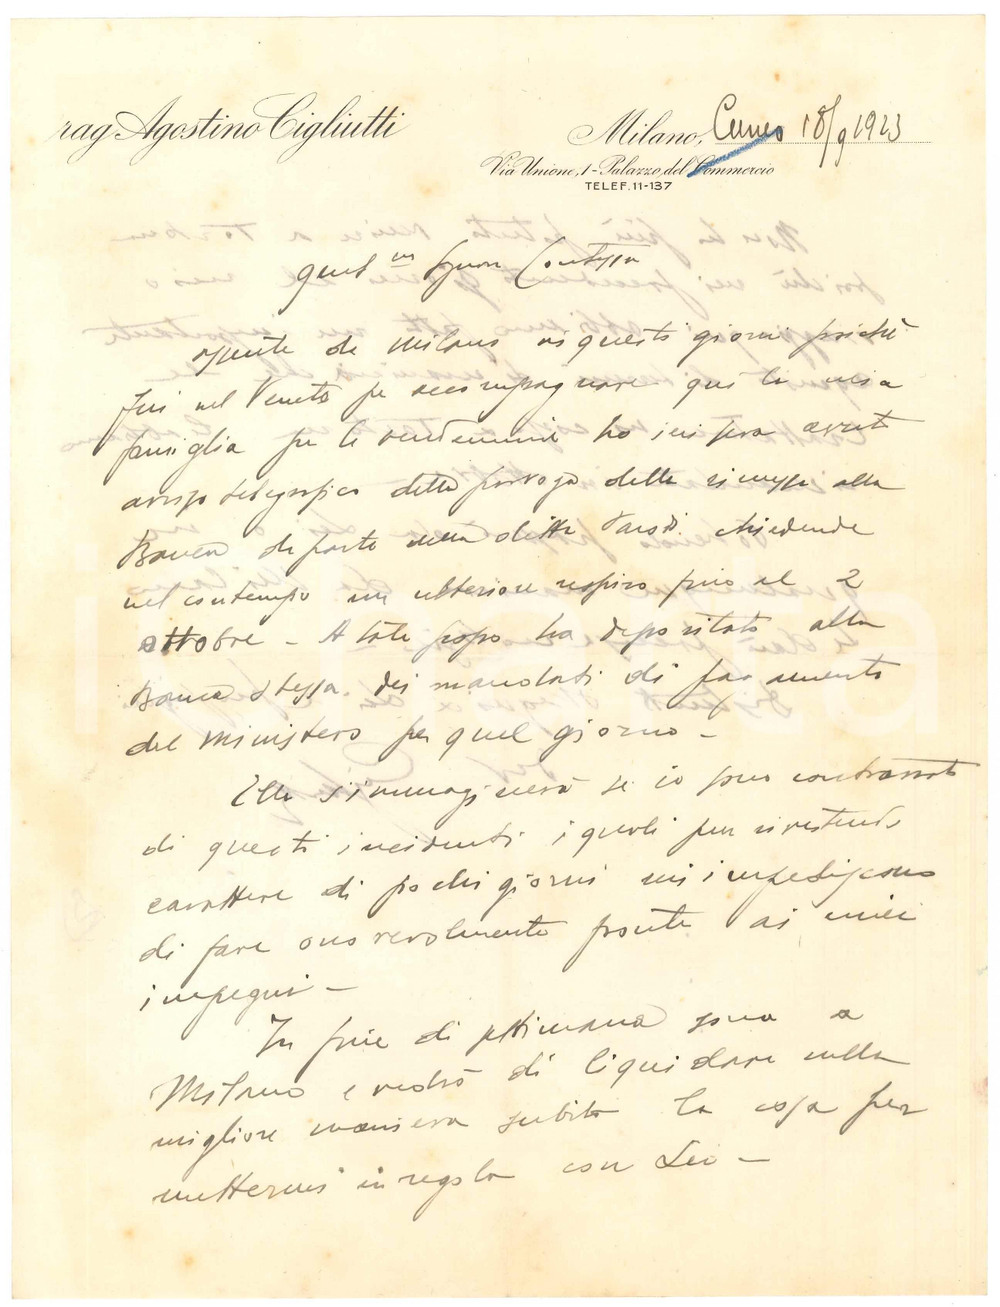 rag Agostino Cigliutti
Milano, Cuneo 18/9 1923
Via Unione, 1 - Palazzo del Commercio
TELEF. 11-137
Gent.ma Signora Contessa
Assente da Milano in questi giorni poichè
fui nel Veneto per accompagnare qui la mia
famiglia per la vendemmia ho ieri sera avuto
avviso telegrafico della proroga della rimessa alla
Banca da parte della ditta chiedendo
nel contempo un ulteriore respiro fino al 2
ottobre - A tale scopo ha depositato alla
Banca stessa dei mandati di pagamento
del Ministero per quel giorno -
Ella s'immaginerà se io sono contrariato
di questi incidenti i quali pur rivestendo
carattere di pochi giorni mi impediscono
di fare onorevolmente fronte ai miei
impegni -
In fine di settimana sono a
Milano e vedrò di liquidare nella
migliore maniera subito la cosa per
mettermi in regola con Lei -